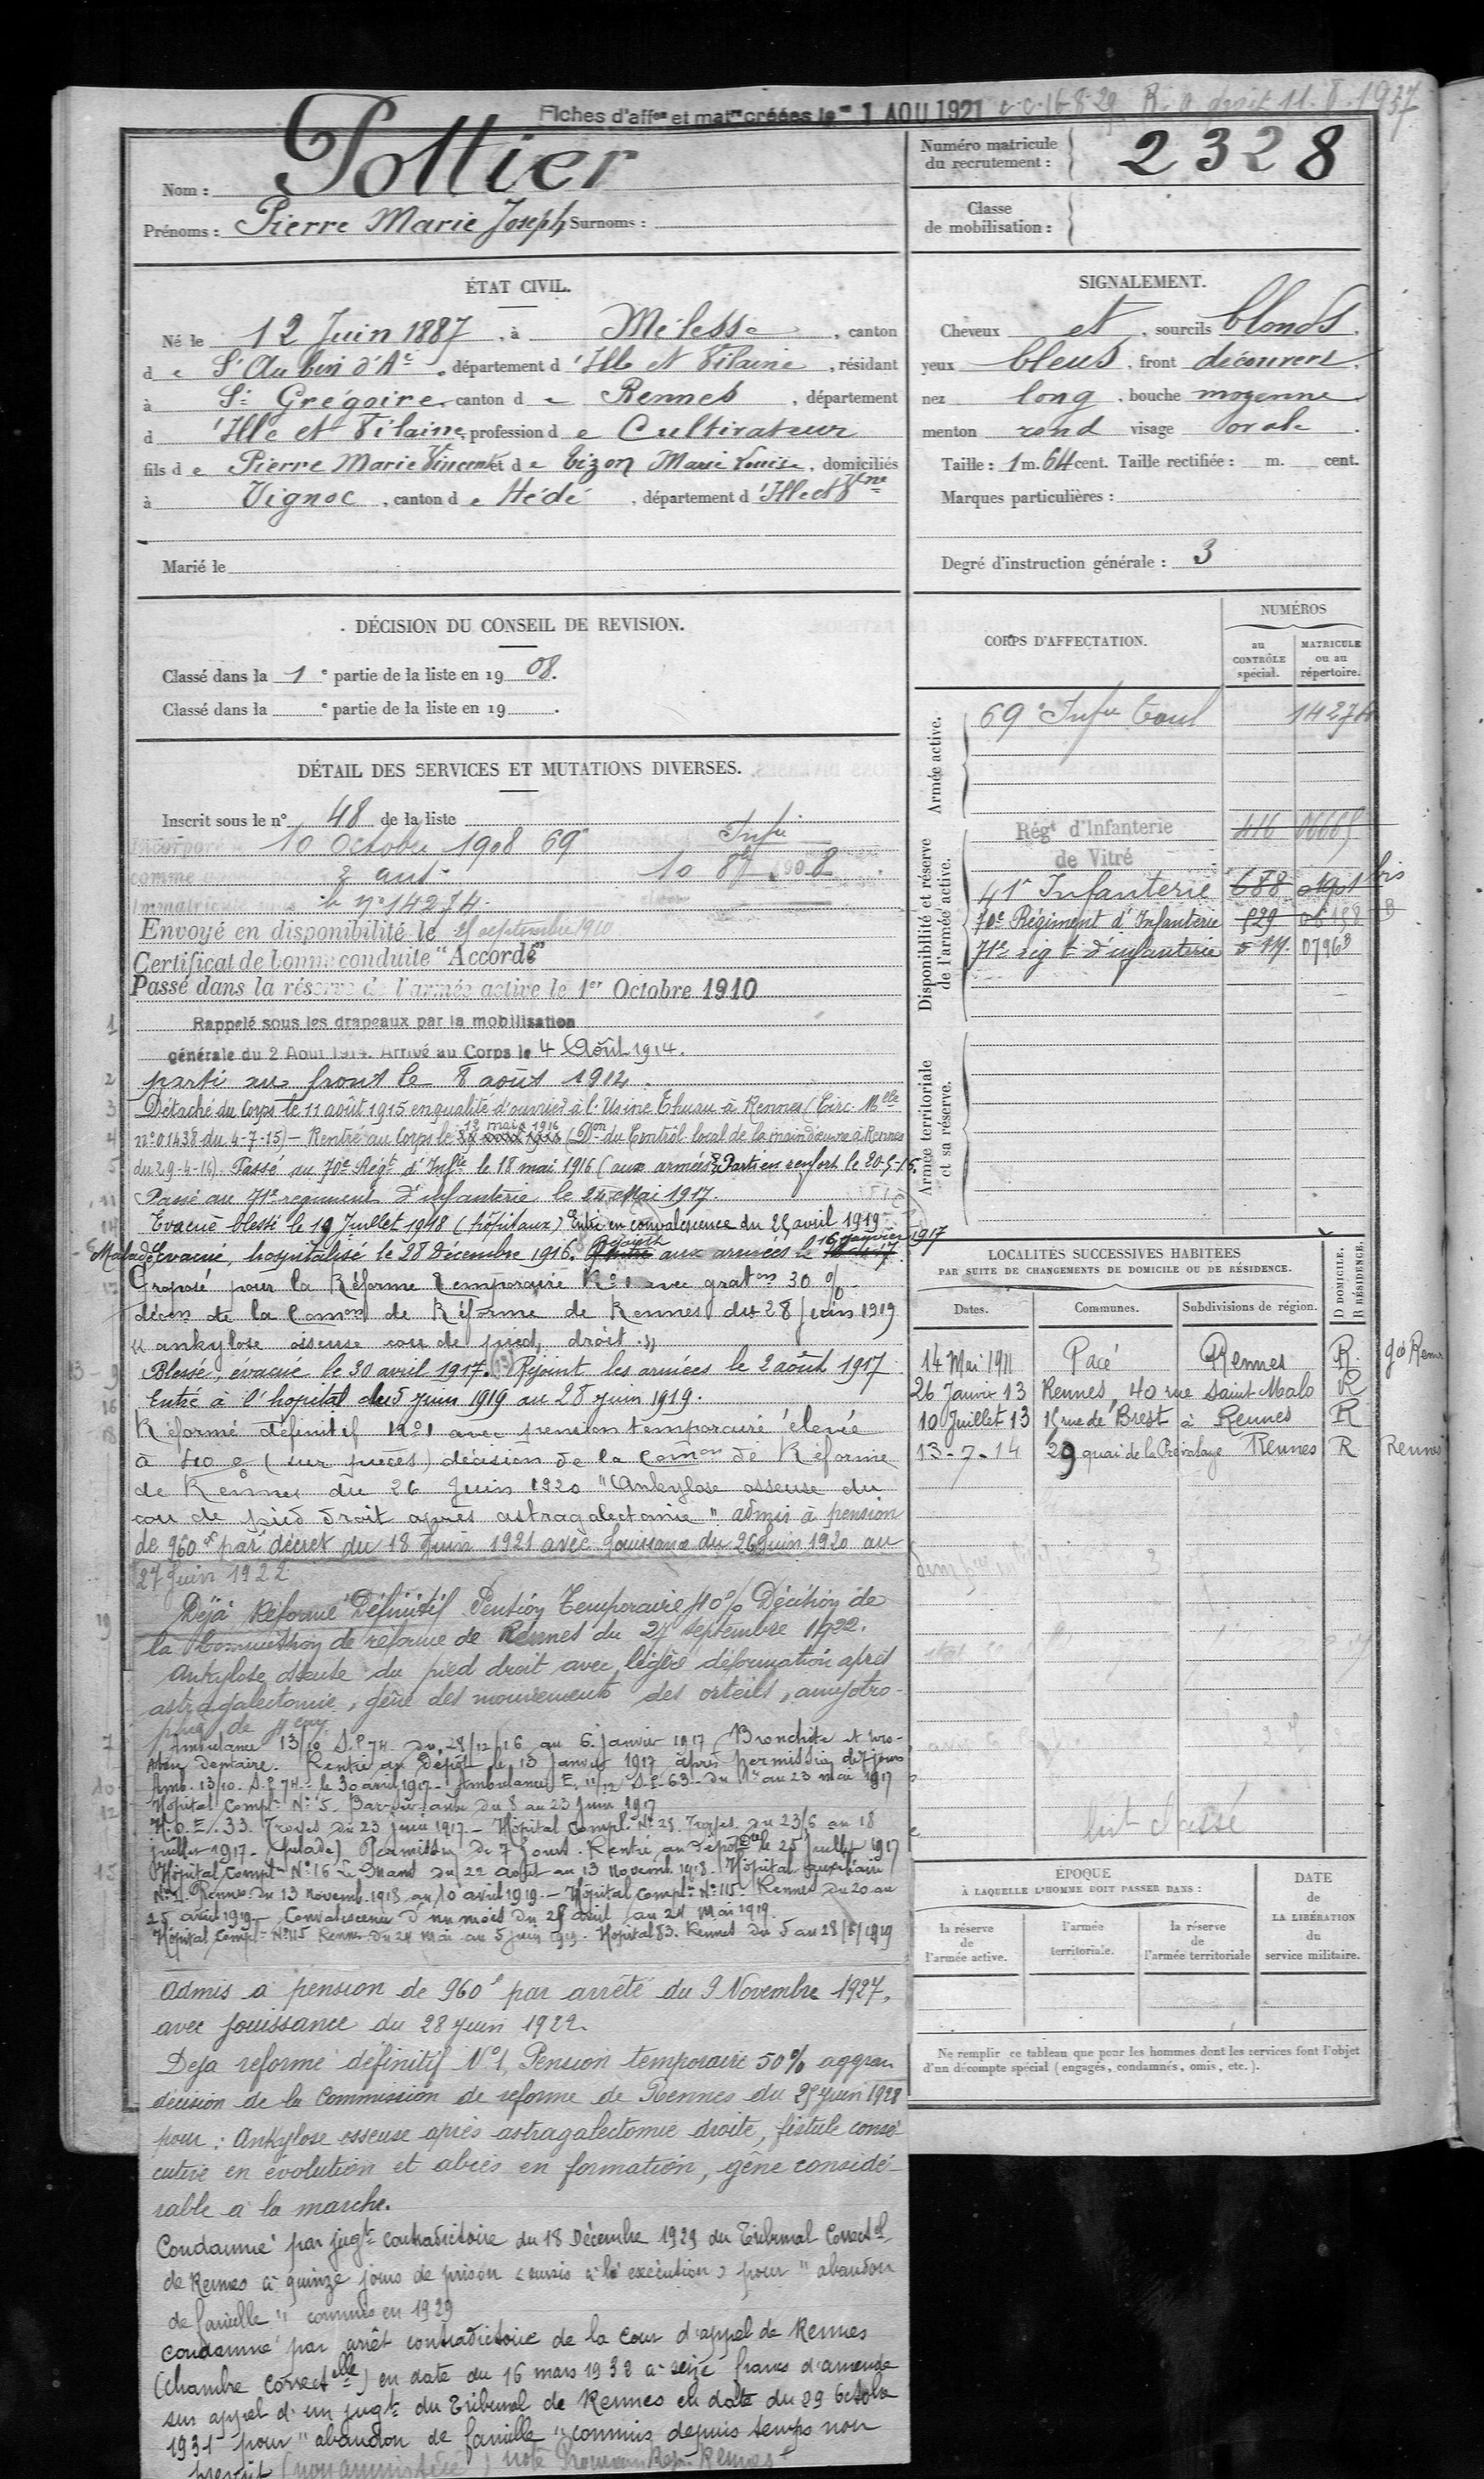 Fiches d'aff<sup>on</sup> et mat<sup>re</sup> créées le 1 AOU 1921 c.c. 16-8-29 R. a droit 11. 1937
Nom : Pottier
Prénoms : Pierre Marie Joseph Surnoms :
Numéro matricule du recrutement : 2328
Classe de mobilisation :
ÉTAT CIVIL.
Né le 12 Juin 1887, à Melesse, canton
de St Aubin d'A<sup>é</sup>, département d'Ille et Vilaine, résidant
à St Grégoire, canton de Rennes, département
d'Ille et Vilaine, profession de Cultivateur
fils de Pierre Marie Vincent et de Bizon Marie Louise, domiciliés
à Vignoc, canton de Hédé, département d'Ille et V<sup>ne</sup>
Marié le
SIGNALEMENT.
Cheveux et, sourcils blonds.
yeux bleus, front découvert.
nez long, bouche moyenne
menton rond visage ovale.
Taille : 1 m. 64 cent. Taille rectifiée : m. cent.
Marques particulières :
Degré d'instruction générale : 3
DÉCISION DU CONSEIL DE REVISION.
Classé dans la 1<sup>e</sup> partie de la liste en 1908.
Classé dans la <sup>e</sup> partie de la liste en 19 .
DÉTAIL DES SERVICES ET MUTATIONS DIVERSES.
Inscrit sous le n° 48 de la liste
Incorporé 10 Octobre 1908 69<sup>e</sup> Inf<sup>ie</sup>
comme 2 ans. 10 8<sup>bre</sup> 1908.
Immatriculé le n° 14274.
Envoyé en disponibilité le 25 septembre 1910
Certificat de bonne conduite "Accordé"
Passé dans la réserve de l'armée active le 1er Octobre 1910
1 Rappelé sous les drapeaux par la mobilisation
générale du 2 Août 1914. Arrivé au Corps le 4 Août 1914.
2 parti au front le 8 août 1914.
3 Détaché du Corps le 11 août 1915 en qualité d'ouvrier à l'Usine Thuau à Rennes (Circ. M<sup>elle</sup>
4 n° 01438 du 4-7-15) – Rentré au Corps le 19 mai 1916 (D<sup>on</sup> du Contrôl local de la main d'œuvre à Rennes
5 du 29-4-16). Passé au 70e Rég<sup>t</sup> d'Inf<sup>ie</sup> le 18 mai 1916 (aux armées) Parti en renfort le 20-5-16.
11 Passé au 71e régiment d'infanterie le 24 Mai 1917.
14 Evacué blessé le 19 Juillet 1918 (hôpitaux) Entré en convalescence du 25 avril 1919.
6 Malade Evacué, hospitalisé le 28 Décembre 1916. Rejoint aux armées le 16 janvier 1917
17 Proposé pour la Réforme Temporaire N° 1 avec grat<sup>on</sup> 30 %
décon de la Com<sup>on</sup> de Réforme de Rennes du 28 juin 1919
"ankylose osseuse cou de pied droit."
13 - 9 Blessé, évacué le 30 avril 1917. (13) Rejoint les armées le 2 août 1917
16 Entré à l'hopital du 5 juin 1919 au 28 juin 1919.
18 Réformé définitif N° 1 avec pension temporaire élevée
à 40 % (sur pièces) décision de la Com<sup>on</sup> de Réforme
de Rennes du 26 Juin 1920 "Ankylose osseuse du
cou de pied droit après astragalectomie" admis à pension
de 960<sup>f</sup> par décret du 18 Juin 1921 avec jouissance du 26 Juin 1920 au
27 Juin 1922.
19 Déjà Réformé Définitif Pension Temporaire 40% Décision de
la Commission de réforme de Rennes du 27 septembre 1922.
Ankylose osseuse du pied droit avec légère déformation après
astragalectomie, gêne des mouvements des orteils, amyotro-
phie de 4 cm.
7 Ambulance 13/10 S.P 74 du 28/12/16 au 6 janvier 1917 Bronchite et pro-
thèse dentaire. Rentré au Dépôt le 13 Janvier 1917 après permission de 7 jours
10 Amb. 13/10. S.P 74 – le 30 avril 1917 – Ambulance E. 11/12 S.P. 63 – du 1er au 23 mai 1917
12 Hôpital Compl<sup>re</sup> N° 5. Bar-sur-Aube du 8 au 23 Juin 1917
H.O.E. 33. Troyes du 23 Juin 1917 – Hôpital Compl. N° 25. Troyes du 23/6 au 18
juillet 1917 – (malade) Permission de 7 jours. Rentré au dépôt le 25 Juillet 1917
15 Hôpital Compl<sup>re</sup> N° 16 Le Mans du 22 août au 13 Novemb. 1918. Hôpital auxiliaire
N° 1 Rennes du 13 novemb. 1918 au 10 avril 1919. – Hôpital Compl<sup>re</sup> N° 115 Rennes du 20 au
25 avril 1919 – Convalescence d'un mois du 25 avril au 24 Mai 1919.
Hôpital Compl<sup>re</sup> N° 115 Rennes du 24 Mai au 5 Juin 1919. Hôpital 83. Rennes du 5 au 28/6/1919
Admis à pension de 960<sup>f</sup> par arrêté du 9 Novembre 1927,
avec jouissance du 28 juin 1922.
Déjà réformé définitif N° 1 Pension temporaire 50% aggrav
décision de la Commission de réforme de Rennes du 25 Juin 1928
pour : Ankylose osseuse après astragalectomie droite, fistule consé-
cutive en évolution et abcès en formation, gêne considé-
rable à la marche.
Condamné par jug<sup>t</sup> contradictoire du 18 Décembre 1929 du Tribunal Correct<sup>el</sup>
de Rennes à quinze jours de prison (sursis à l'exécution) pour "abandon
de famille" commis en 1929
condamné par arrêt contradictoire de la Cour d'appel de Rennes
(chambre correct<sup>elle</sup>) en date du 16 mars 1932 à seize francs d'amende
sur appel d'un jug<sup>t</sup> du Tribunal de Rennes en date du 29 Octobre
1931 pour "abandon de famille" commis depuis temps non
prescrit (non amnistié) note Rennes
CORPS D'AFFECTATION.
NUMÉROS
au CONTRÔLE spécial.
MATRICULE ou au répertoire.
Armée active.
69<sup>e</sup> Inf<sup>ie</sup> Toul 14274
Disponibilité et réserve de l'armée active.
Rég<sup>t</sup> d'Infanterie 416 06665
de Vitré
41<sup>e</sup> Infanterie 688 bis
70e Régiment d'Infanterie 529 08158 B
71e rég<sup>t</sup> d'infanterie 07963
Armée territoriale et sa réserve.
LOCALITÉS SUCCESSIVES HABITÉES
PAR SUITE DE CHANGEMENTS DE DOMICILE OU DE RÉSIDENCE.
D DOMICILE. R RÉSIDENCE.
Dates. Communes. Subdivisions de région.
14 Mai 1911 Pacé Rennes R.
26 Janvier 13 Rennes, 40 rue Saint Malo R
10 Juillet 13 15 rue de Brest à Rennes R
13-7-14 29 quai de la Prévalaye Rennes R Rennes
classé
ÉPOQUE
À LAQUELLE L'HOMME DOIT PASSER DANS :
la réserve de l'armée active.
l'armée territoriale.
la réserve de l'armée territoriale
DATE de LA LIBÉRATION du service militaire.
Ne remplir ce tableau que pour les hommes dont les services font l'objet
d'un décompte spécial (engagés, condamnés, omis, etc.).